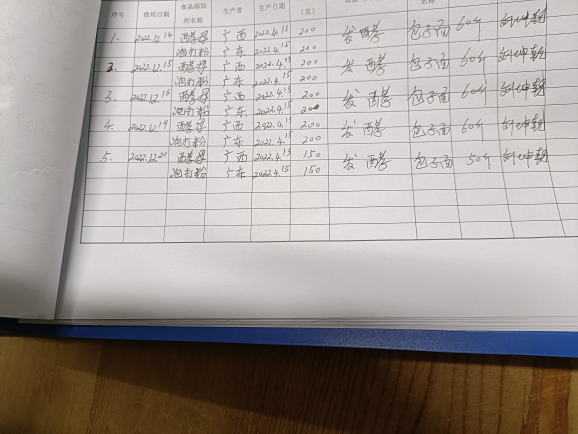 序号 使用日期 食品添加剂名称 生产者 生产日期 (克) 名称
1. 2022.12.14 酵母 广西 2022.4.15 200 发酵 包子面 60斤
泡打粉 广东 2022.4.15 200
2. 2022.12.15 酵母 广西 2022.4.15 200 发酵 包子面 60斤
泡打粉 广东 2022.4.15 200
3. 2022.12.16 酵母 广西 2022.4.15 200 发酵 包子面 60斤
泡打粉 广东 2022.4.15 200
4. 2022.12.19 酵母 广西 2022.4.15 200 发酵 包子面 60斤
泡打粉 广东 2022.4.15 200
5. 2022.12.20 酵母 广西 2022.4.15 150 发酵 包子面 50斤
泡打粉 广东 2022.4.15 150